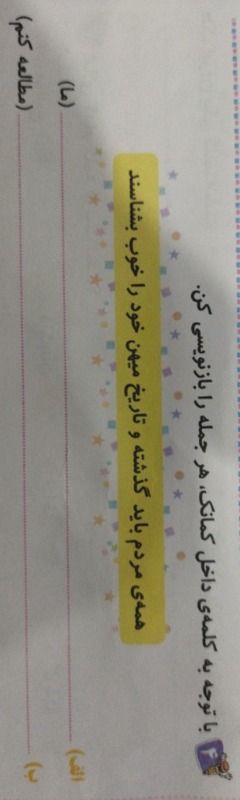 ۴ با توجه به کلمه‌ی داخل کمانک، هر جمله را بازنویسی کن.
همه‌ی مردم باید گذشته و تاریخ میهن خود را خوب بشناسند
الف) (ما)
ب) (مطالعه کنم)